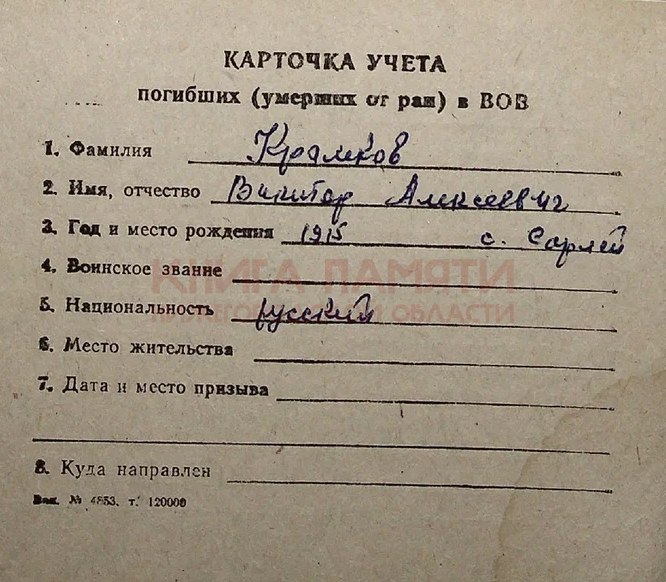 КАРТОЧКА УЧЕТА
погибших (умерших от ран) в ВОВ
1. Фамилия Крамков
2. Имя, отчество Виктор Алексеевич
3. Год и место рождения 1915 с. Сарлей
4. Воинское звание
КНИГА ПАМЯТИ
5. Национальность русский
НИЖЕГОРОДСКОЙ ОБЛАСТИ
6. Место жительства
7. Дата и место призыва
8. Куда направлен
Зак. № 4853. т. 120000